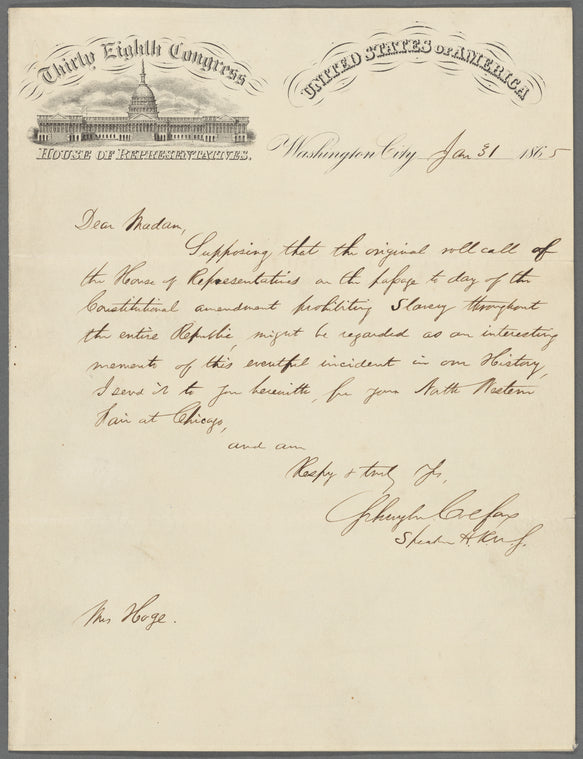 Thirty Eighth Congress
UNITED STATES OF AMERICA
HOUSE OF REPRESENTATIVES.
Washington City Jan 31 1865
Dear Madam,
Supposing that the original roll call of
the House of Representatives on the passage to day of the
Constitutional amendment prohibiting Slavery throughout
the entire Republic, might be regarded as an interesting
memento of this eventful incident in our History,
I send it to you herewith, for your North Western
Fair at Chicago,
and am
Respy & truly Yrs,
Schuyler Colfax
Speaker H.R.U.S.
Mrs Hoge.